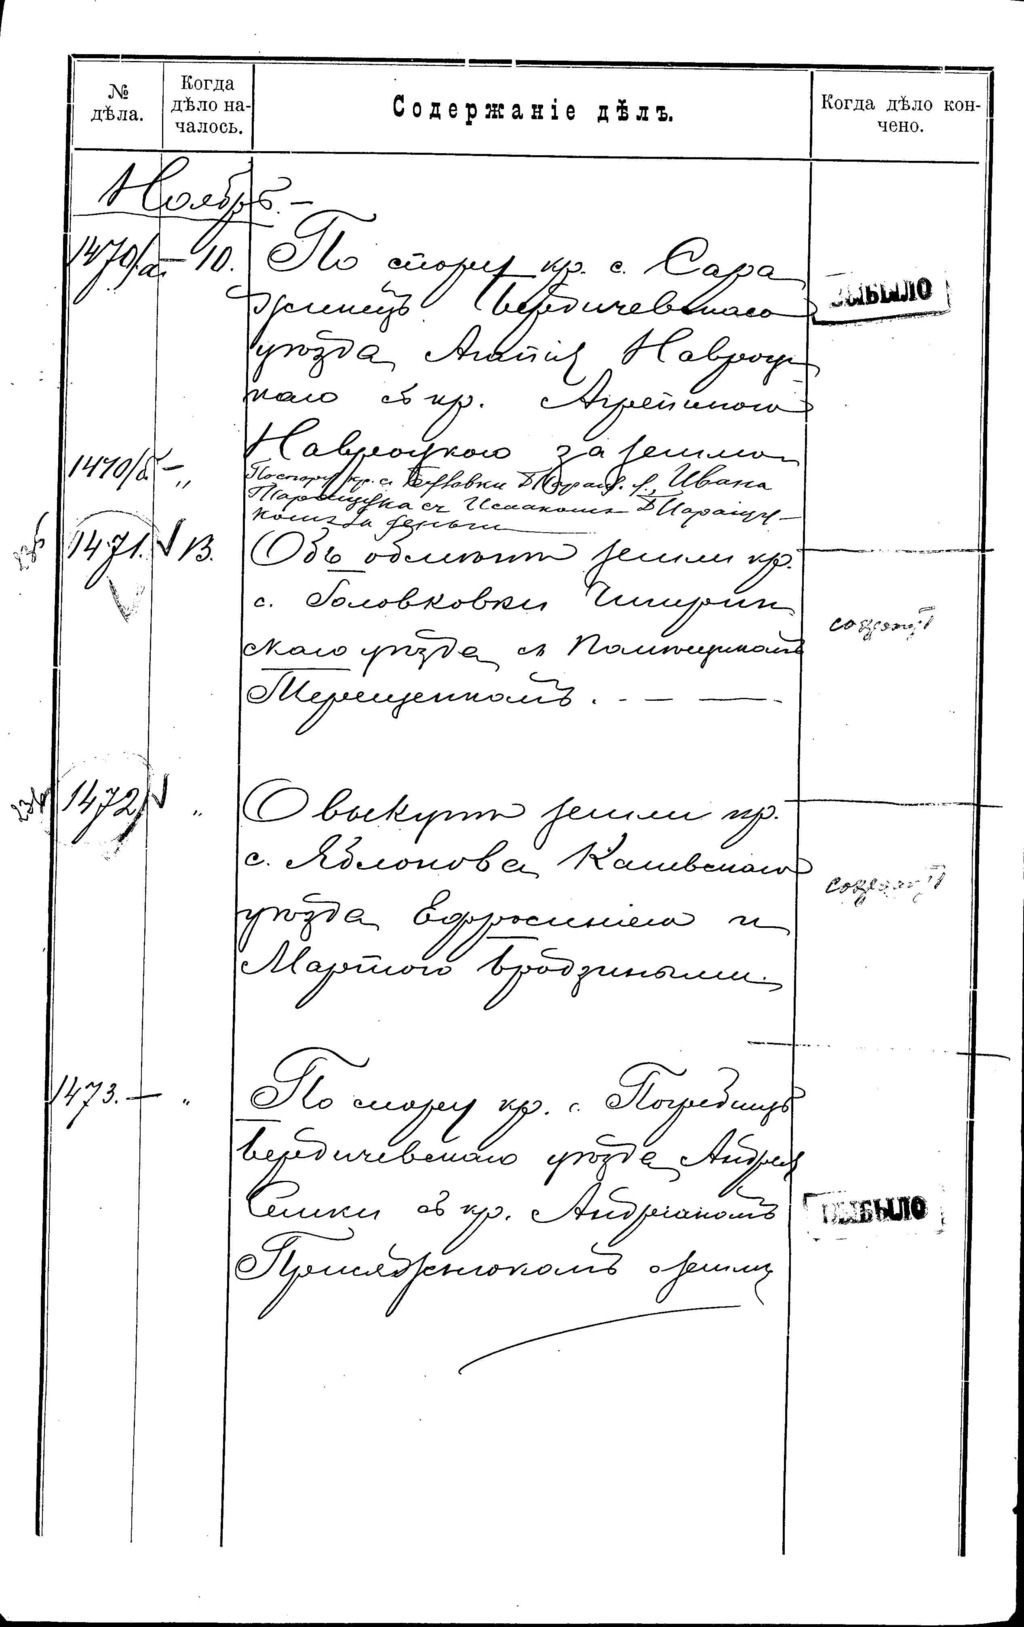 № дѣла.
Когда дѣло на-
чалось.
Содержаніе дѣлъ.
Когда дѣло кон-
чено.
Ноябрь.-
1470/а.- 10. По спору кр. с. Сара
жинецъ Бердичевскаго
уѣзда Агапія Навроц
каго съ кр.
Навроцкаго за землю
ВЫБЫЛО
1470/б. - „ По спору кр. с. Ивана
Паращука съ Исааком Паращу-
ком за деньги
1471. 13. Объ обмѣнѣ земли кр.
с. Головковки Чигирин
скаго уѣзда съ Помѣщикомъ
Терещенкомъ. - — —
1472 „ О выкупѣ земли кр.
с. Яблонова Каневскаго
уѣзда Ефросиніею и
Мартою Бродзиными.
1473. — „ По спору кр. с. Погребищъ
Бердичевскаго уѣзда Андрея
Семки съ кр. Андріаномъ
Присяжнюкомъ о землѣ
ВЫБЫЛО